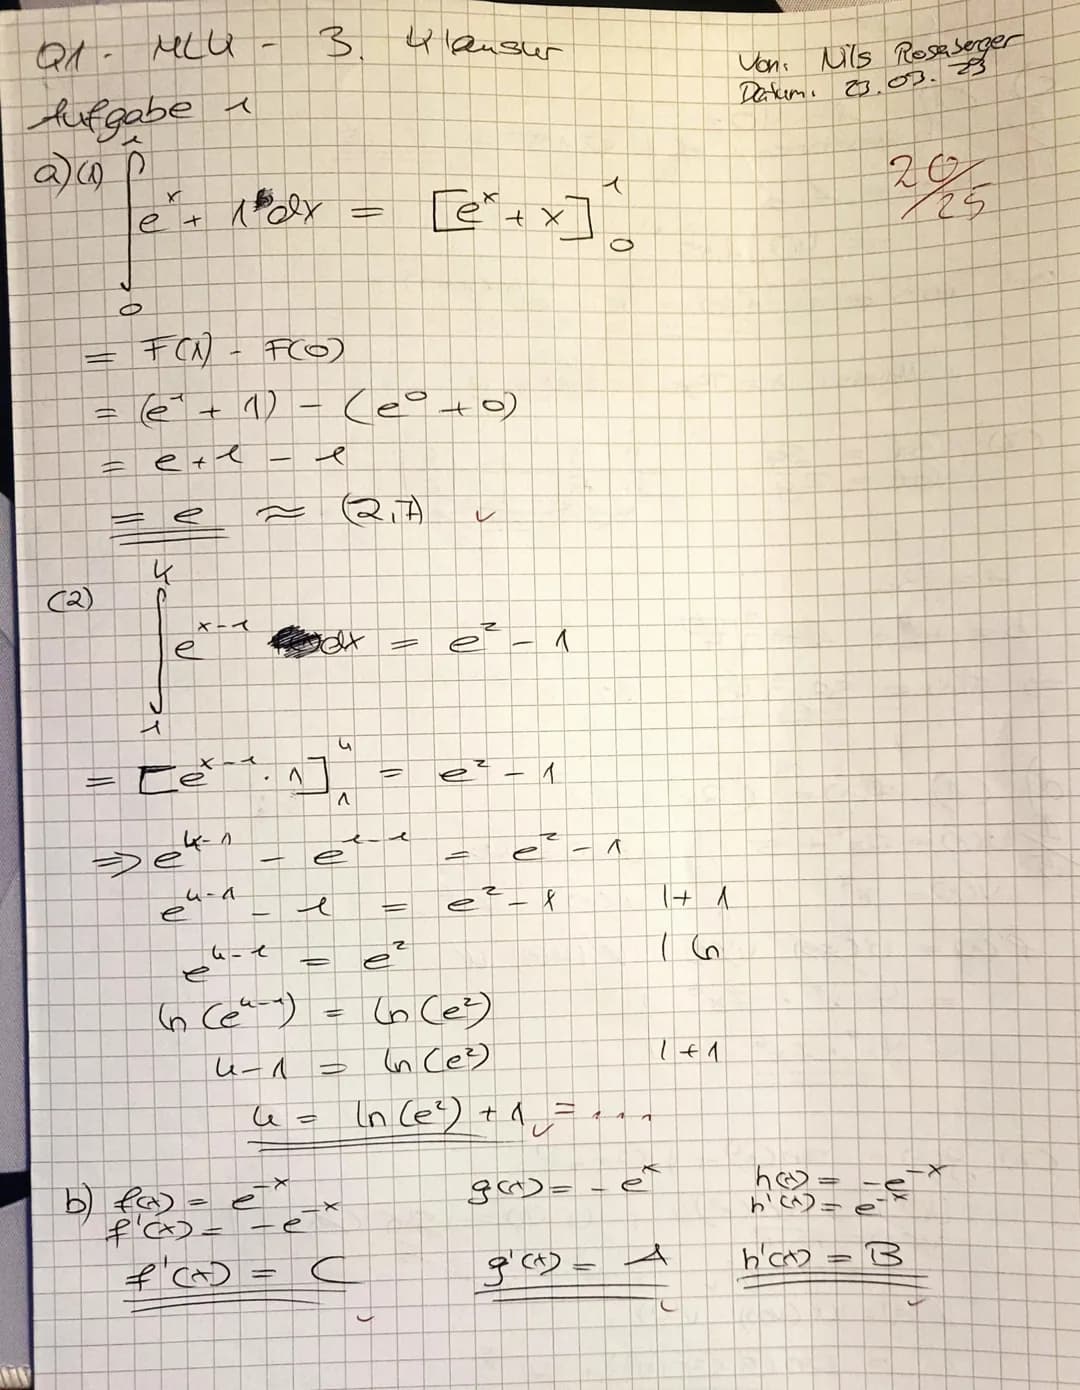 Q1 - MLK - 3. Klausur
Von: Nils Rosenberger
Datum: 23.03.23
Aufgabe 1
20/25
a) (1) ∫₀¹ eˣ + 1 dx = [eˣ + x]₀¹
= F(1) - F(0)
= (e¹ + 1) - (e⁰ + 0)
= e + 1 - 1
= e ≈ (2,7) ✓
(2) ∫₁ᵘ eˣ⁻¹ dx = e² - 1
= [eˣ⁻¹ · 1]₁ᵘ = e² - 1
⇒ eᵘ⁻¹ - e¹⁻¹ = e² - 1
eᵘ⁻¹ - 1 = e² - 1 | + 1
eᵘ⁻¹ = e² | ln
ln(eᵘ⁻¹) = ln(e²)
u - 1 = ln(e²) | + 1
u = ln(e²) + 1 ✓ = ...
b) f(x) = e⁻ˣ g(x) = - eˣ h(x) = - e⁻ˣ
f'(x) = - e⁻ˣ h'(x) = e⁻ˣ
f'(x) = C ✓ g'(x) = A ✓ h'(x) = B ✓